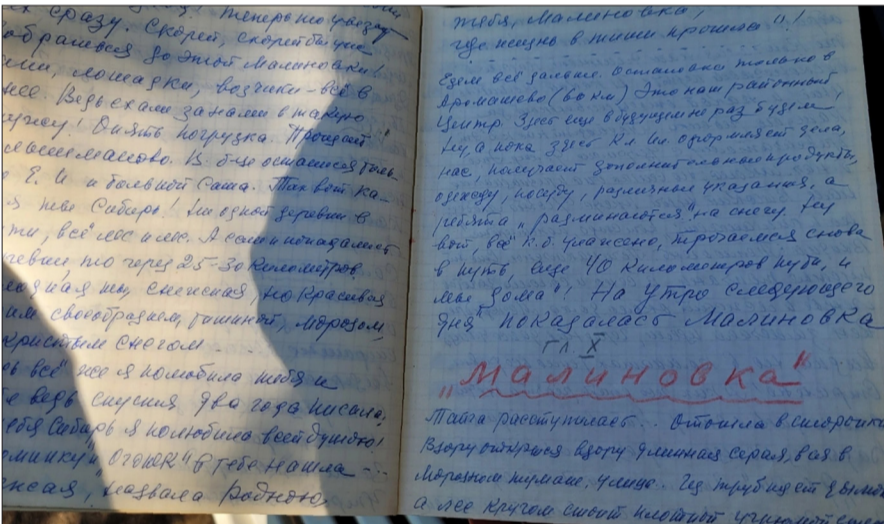 сразу. Скорей, скорей бы уже
добраться до этой Малиновки!
лошадки, возчики - всё в
Ведь ехали за нами в такую
стужу! Опять погрузка. Прощай
Голышманово. В б-це остались толь-
Е. И и больной Саша. Так вот ка-
я ты Сибирь! Ни одной деревни в
ти, всё лес и лес. А если и попадается
то через 25-30 километров.
ты, снежная, но красивая
им своеобразием, тишиной, морозом,
снегом
всё же я полюбила тебя и
ведь спустя два года писала,
тебя Сибирь я полюбила всей душою!
огонёк" в тебе нашла
назвала родною,
тебя, Малиновка,
где жизнь в тиши прошла"!
Едем всё дальше. Остановка только в
Аромашево (80 км) Это наш районный
Центр. Здесь ещё в будущем не раз будем!
Ну, а пока здесь Кл Ил. оформляет дела,
нас, получает дополнительно продукты,
одежду, посуду, различные указания, а
ребята „разминаются" на снегу. Ну
вот, всё к.б. улажено, трогаемся снова
в путь, еще 40 километров пути, и
мы „дома"! На утро следующего
дня показалась Малиновка
Гл X
„Малиновка"
Тайга расступилась.. Отошла в сторонку
Взору открылся вдору длинная серая, вся в
Морозном тумане, улица. Из труб идёт дымок
а кругом стоит плотной